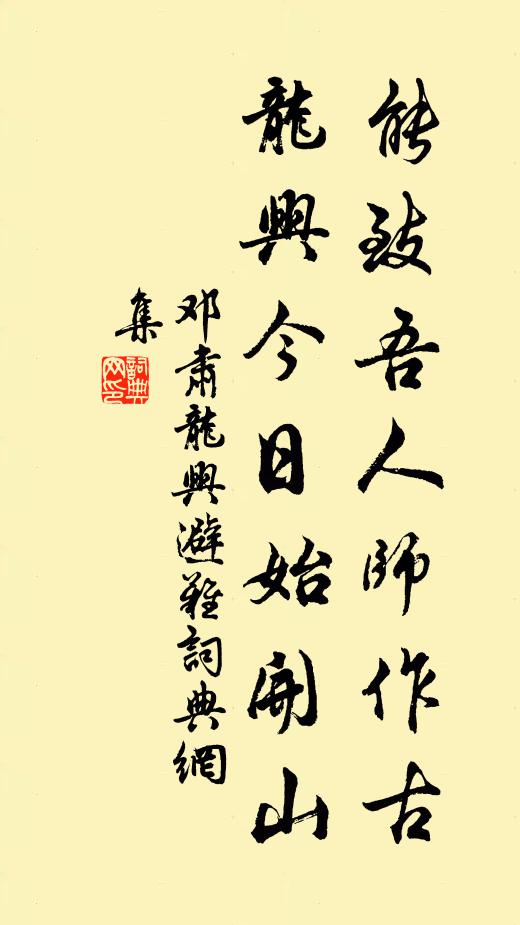 能致吾人師作古
龍興今日始開山
邓肅龍興避難詞典網
集
詞典
网印